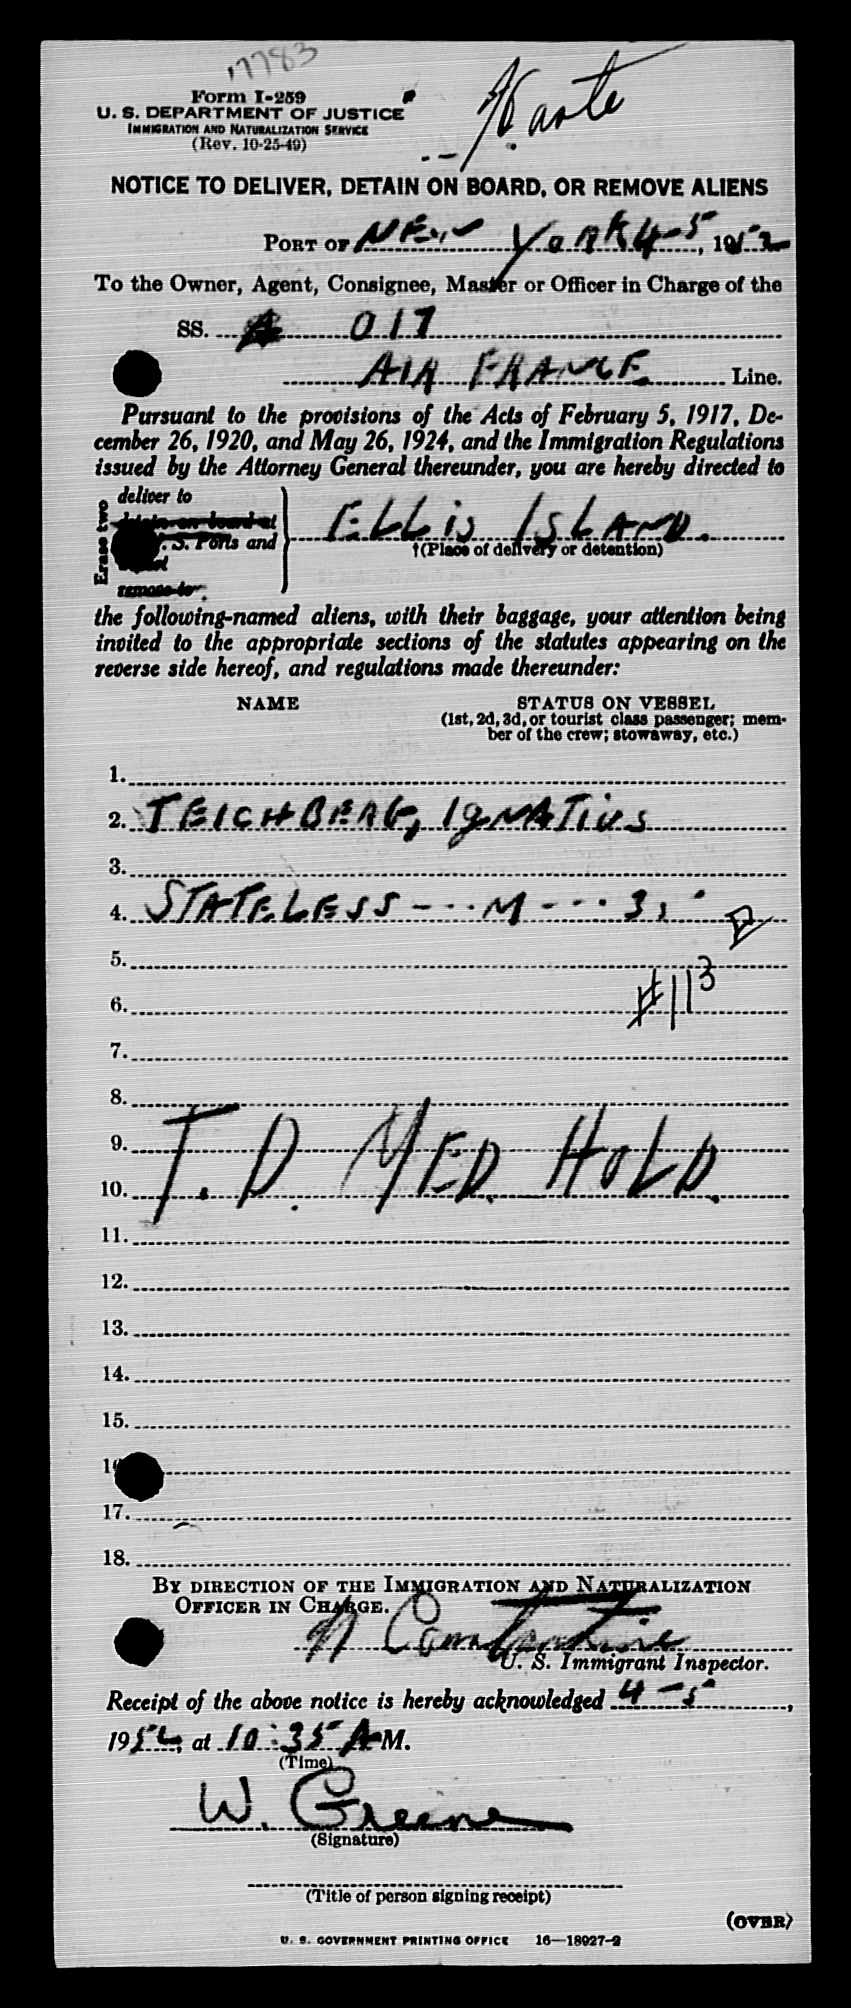 17783
Form I-259
U. S. DEPARTMENT OF JUSTICE
IMMIGRATION AND NATURALIZATION SERVICE
(Rev. 10-25-49)
NOTICE TO DELIVER, DETAIN ON BOARD, OR REMOVE ALIENS
PORT OF NEW YORK 4-5, 1952
To the Owner, Agent, Consignee, Master or Officer in Charge of the
SS. 017
AIR FRANCE Line.
Pursuant to the provisions of the Acts of February 5, 1917, De-
cember 26, 1920, and May 26, 1924, and the Immigration Regulations
issued by the Attorney General thereunder, you are hereby directed to
Erase two
deliver to
detain on board at
U. S. Ports and
remove to
ELLIS ISLAND.
†(Place of delivery or detention)
the following-named aliens, with their baggage, your attention being
invited to the appropriate sections of the statutes appearing on the
reverse side hereof, and regulations made thereunder:
NAME STATUS ON VESSEL
(1st, 2d, 3d, or tourist class passenger; mem-
ber of the crew; stowaway, etc.)
1.
2. TEICHBERG, IGNATIUS
3.
4. STATELESS --- M ---
5.
#113
6.
7.
8.
9. T. D. MED. HOLD.
10.
11.
12.
13.
14.
15.
16
17.
18.
BY DIRECTION OF THE IMMIGRATION AND NATURALIZATION
OFFICER IN CHARGE.
Constantine
U. S. Immigrant Inspector.
Receipt of the above notice is hereby acknowledged 4-5,
19 at 10:35 AM.
(Time)
W. Greene
(Signature)
(Title of person signing receipt)
(OVER)
U. S. GOVERNMENT PRINTING OFFICE 16—18927-2